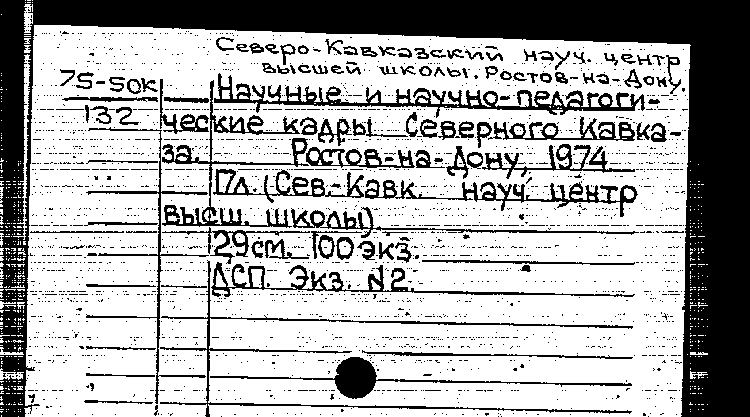 Северо-Кавказский науч. центр
высшей школы. Ростов-на-Дону.
75-50к
132
Научные и научно-педагоги-
ческие кадры Северного Кавка-
за. Ростов-на-Дону, 1974
Пл. (Сев.-Кавк. науч. центр
высш. школы)
29см. 100 экз.
ДСП. Экз. N2.